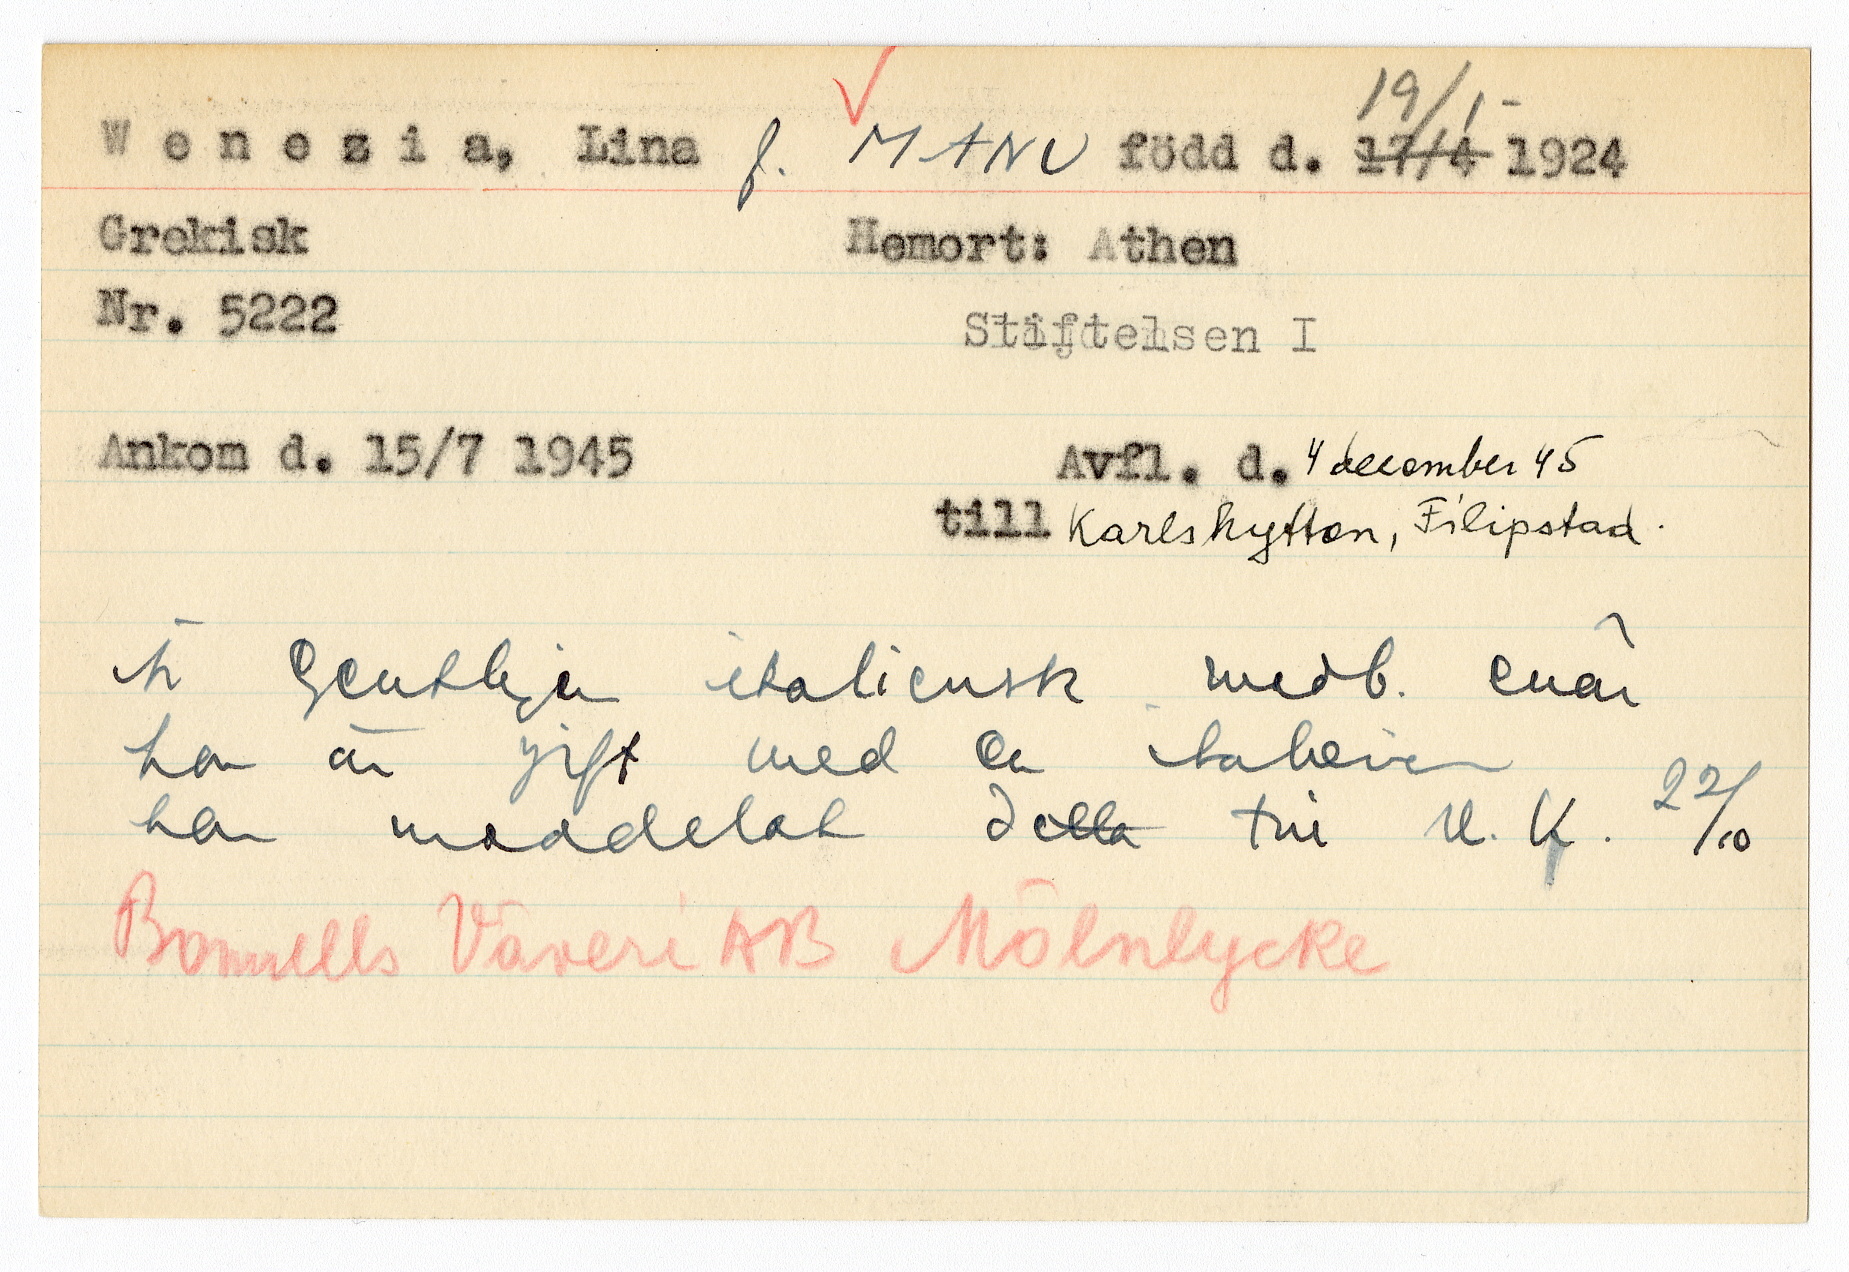 Wenezia, Lina f. MANU född d. 17/4 19/1- 1924
Grekisk Hemort: Athen
Nr. 5222 Stiftelsen I
Ankom d. 15/7 1945 Avfl. d. 4 december 45
till Karlshyttan, Filipstad.
är italiensk medb. enär
hon är gift med en italienare
har meddelat detta till U.K. 22/10
Bomulls Väveri AB Mölnlycke